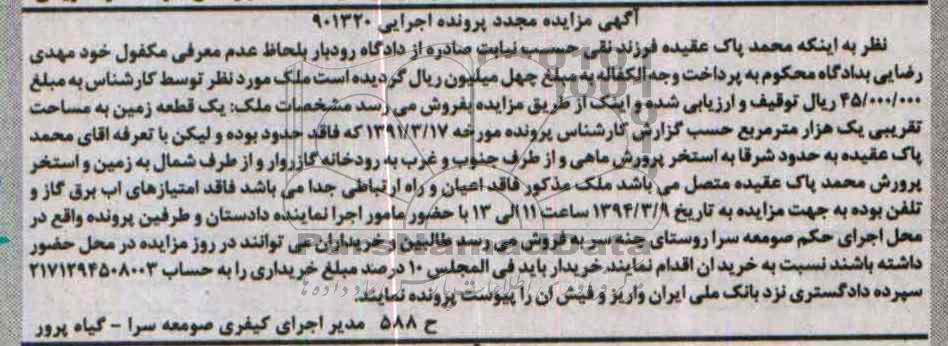 آگهی مزایده مجدد پرونده اجرایی ۹۰۱۳۲۰
نظر به اینکه محمد پاک عقیده فرزند نقی حسب نیابت صادره از دادگاه رودبار بلحاظ عدم معرفی مکفول خود مهدی
رضایی بدادگاه محکوم به پرداخت وجه الکفاله به مبلغ چهل میلیون ریال گردیده است ملک مورد نظر توسط کارشناس به مبلغ
۴۵/۰۰۰/۰۰۰ ریال توقیف و ارزیابی شده و اینک از طریق مزایده بفروش می رسد مشخصات ملک: یک قطعه زمین به مساحت
تقریبی یک هزار مترمربع حسب گزارش کارشناس پرونده مورخه ۱۳۹۱/۳/۱۷ که فاقد حدود بوده و لیکن با تعرفه اقای محمد
پاک عقیده به حدود شرقا به استخر پرورش ماهی و از طرف جنوب و غرب به رودخانه گازروار و از طرف شمال به زمین و استخر
پرورش محمد پاک عقیده متصل می باشد ملک مذکور فاقد اعیان و راه ارتباطی جدا می باشد فاقد امتیازهای اب برق گاز و
تلفن بوده به جهت مزایده به تاریخ ۱۳۹۴/۳/۹ ساعت ۱۱ الی ۱۳ با حضور مامور اجرا نماینده دادستان و طرفین پرونده واقع در
محل اجرای حکم صومعه سرا روستای چنه سر به فروش می رسد طالبین و خریداران می توانند در روز مزایده در محل حضور
داشته باشند نسبت به خرید ان اقدام نمایند.خریدار باید فی المجلس ۱۰ درصد مبلغ خریداری را به حساب ۲۱۷۱۲۹۴۵۰۸۰۰۳
سپرده دادگستری نزد بانک ملی ایران واریز و فیش ان را پیوست پرونده نمایند.
ح ۵۸۸ مدیر اجرای کیفری صومعه سرا - گیاه پرور